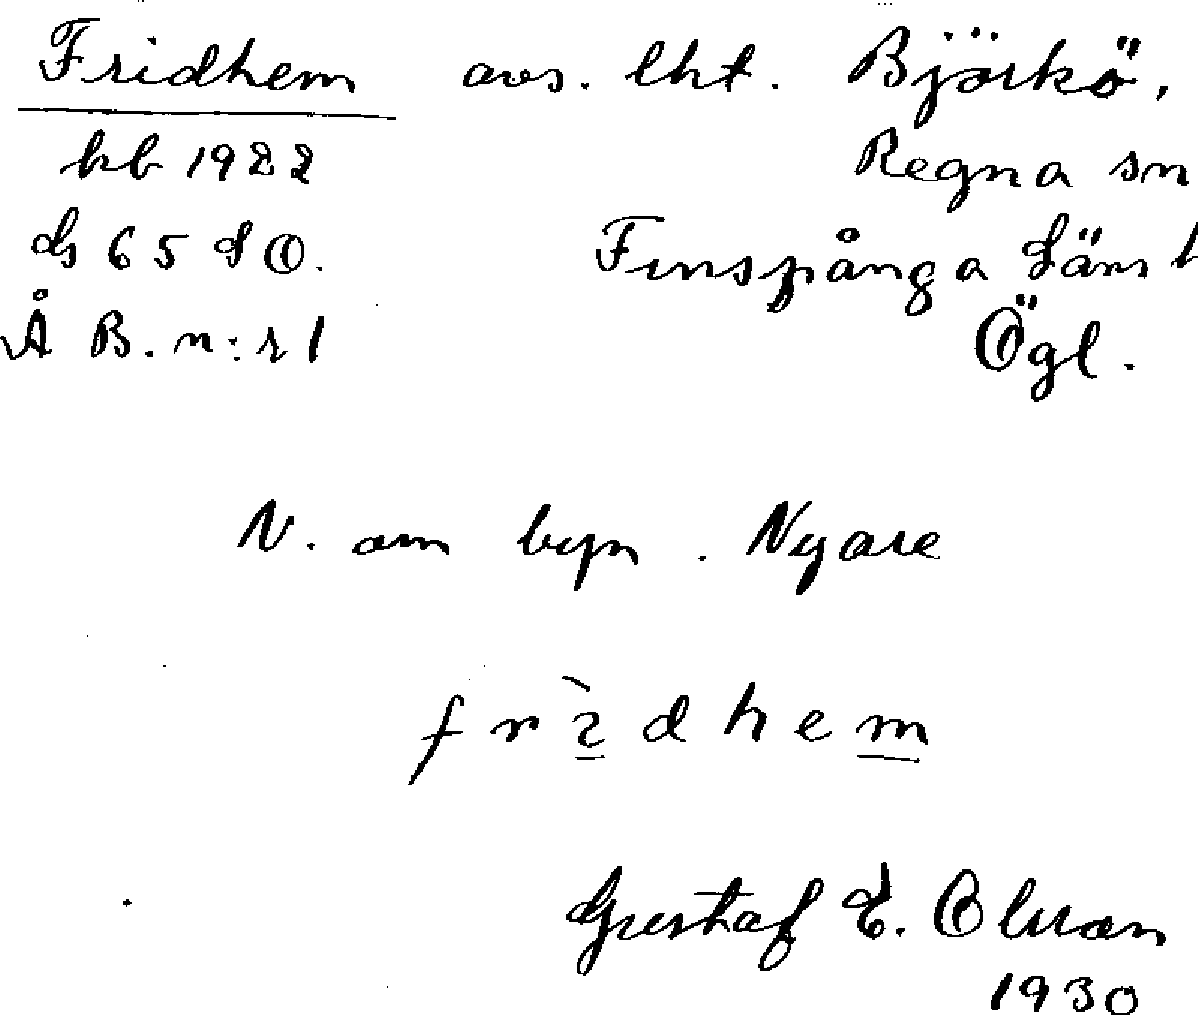 Fridhem avs. lht. Björkö,
kb 1922 Regna sn
ds 65 SO. Finspånga läns h
Å B. n:r 1 Ögl.
N. om byn. Nyare
frìdhem
Gustaf E. Olsson
1930